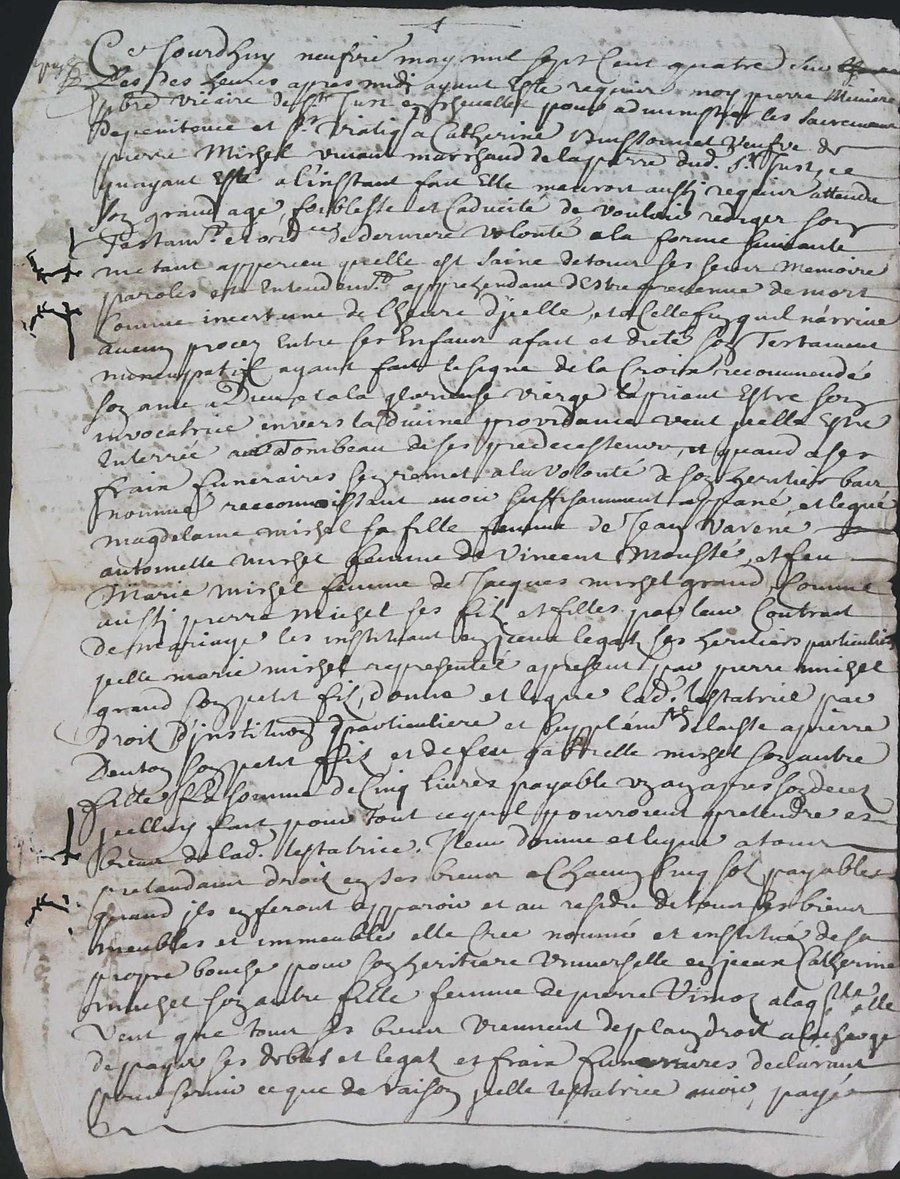 Ce Jourdhuy neufvie may mil sept Cent quatre
Les des heures apres midi ayant Este requis moy pierre Meniere
pbre vicaire de St Just en chevallet pour administrer les Sacremens
De penitence et St viatiq a Catherine veufve de
pierre Michel vivant marchand de la dud. St Just, ce
quayant Esté a l'instant fait Elle mauroit aussi requis attendu
son grand age foiblesse et Caducité de vouloir rediger son
Testam.t et ord.ce de derniere volonté a la forme suivante
metant apperceu quelle est saine de tous ses sens Memoire
paroles et Entendem.t apprehendant d'Estre prevenue de mort
Comme incertaine de l'heure d'jcelle, et a Celle fin quil n'arrive
aucun procez Entre ses Enfans a fait et dicté son Testament
noncupatif ayant fait le signe de la Croix recommendé
son ame a Dieu et a la glorieuse vierge la priant Estre son
invocatrice envers la divine providance veut jcelle Estre
Enterrée au Tombeau de ses predecesseurs, et quand a ses
frais funeraires sen remet a la volonté de son heritier bas
nommé reconnoissant avoir suffisamment appané, et legué
magdelaine michel sa fille femme de Jean Varene
antoinette michel femme de Vincent et feu
Marie michel femme de Jacques michel grand, Comme
aussi pierre Michel ses fils et filles par leur Contract
de mariage les instituant en jceux legat ses heritiers particuliers
jcelle marie michel representée a present par pierre michel
grand son petit fils, donne et legue lad. testatrice par
droit d'institution particuliere et supplém.t delaisse a pierre
son petit fils et de feu gabrielle michel son autre
fille la somme de Cinq livres payable un an apres son decez
jcelluy fait pour tout ce quil pourroient pretendre es
biens de lad. testatrice. Item donne et legue a tous
pretendant droit en ses biens a Chacun Cinq sols payables
quand jls en feront apparoir et au residu de tous ses biens
meubles et immeubles elle Crée nommé et institué de sa
propre bouche pour son heritiere Universelle en jceux Catherine
michel son autre fille femme de pierre a laq.lle elle
veut que tous ses biens viennent de plain droit a la charge
de payer ses debtes et legat et frais funeraires declarant
pour servir ce que de raison jcelle testatrice avoir payé